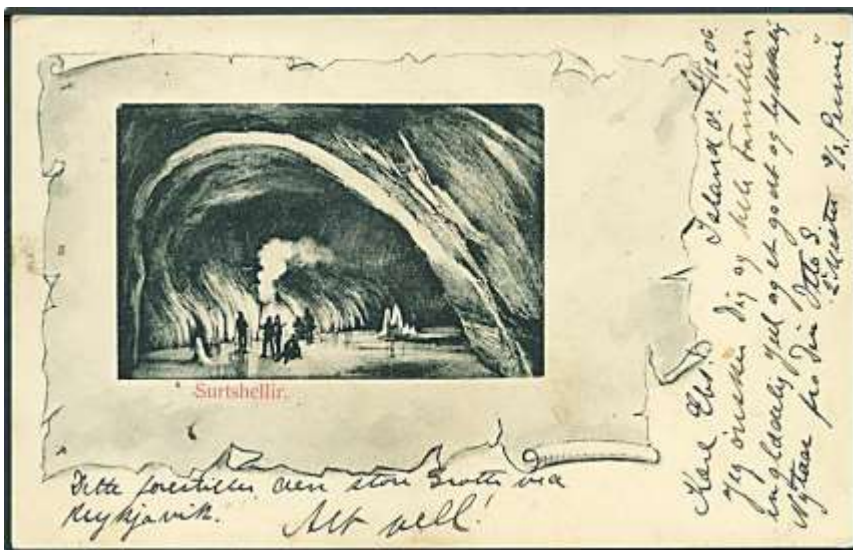 Surtshellir.
Dette forestiller den store Grotte ved
Reykjavik. Alt vell!
Island d. /12 06.
Kære
Jeg ønsker Dig og hele Familien
en glædelig Jul og et godt og lykkelig
Nytaar fra Din Otto S.